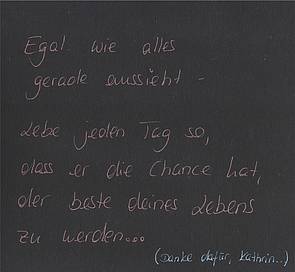 Egal wie alles
gerade aussieht -
Lebe jeden Tag so,
dass er die Chance hat,
der beste deines Lebens
zu werden...
(Danke dafür, Kathrin..)